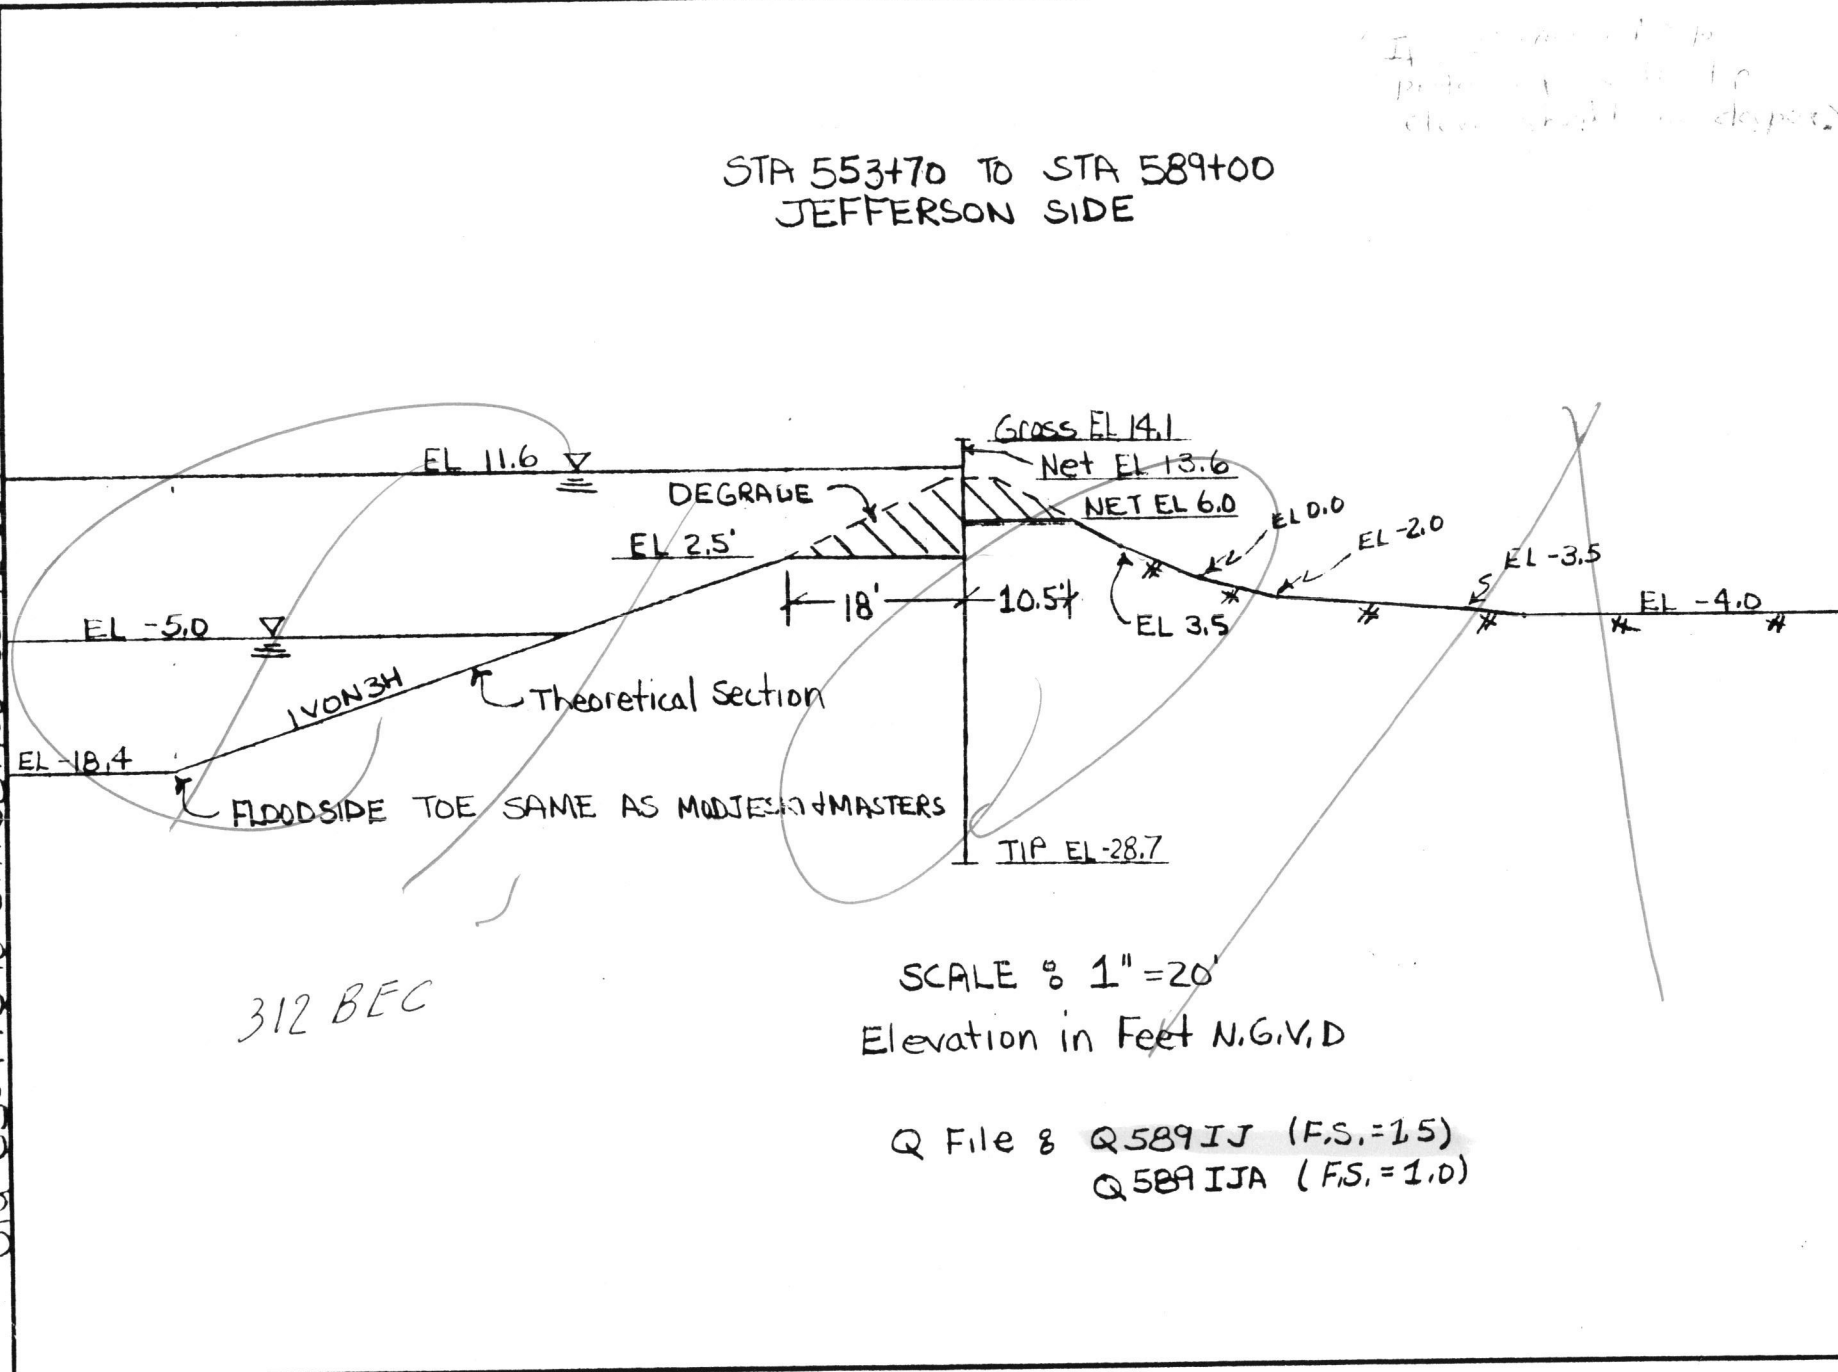 STA 553+70 TO STA 589+00
JEFFERSON SIDE
Gross EL 14.1
EL 11.6
Net EL 13.6
DEGRADE
NET EL 6.0
EL 0.0
EL -2.0
EL 2.5'
EL -3.5
18'
10.5'
EL -4.0
EL -5.0
EL 3.5
1VON3H
Theoretical Section
EL -18.4
FLOODSIDE TOE SAME AS MODJESKI & MASTERS
TIP EL -28.7
SCALE : 1" = 20'
312 BEC
Elevation in Feet N.G.V.D
Q File : Q589IJ (F.S.=1.5)
Q589IJA (F.S.=1.0)